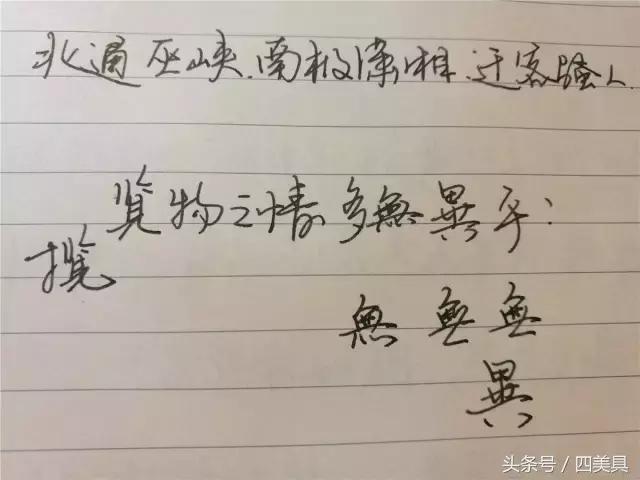 北通巫峡.南极潇湘.迁客骚人.
览物之情多無異乎:
揽
無無無
異
头条号/四美具